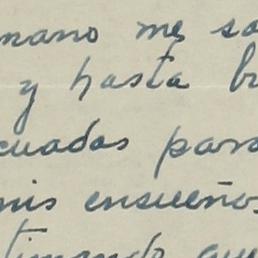 mano me
y hasta
cuadas para
mis ensueños
timando que